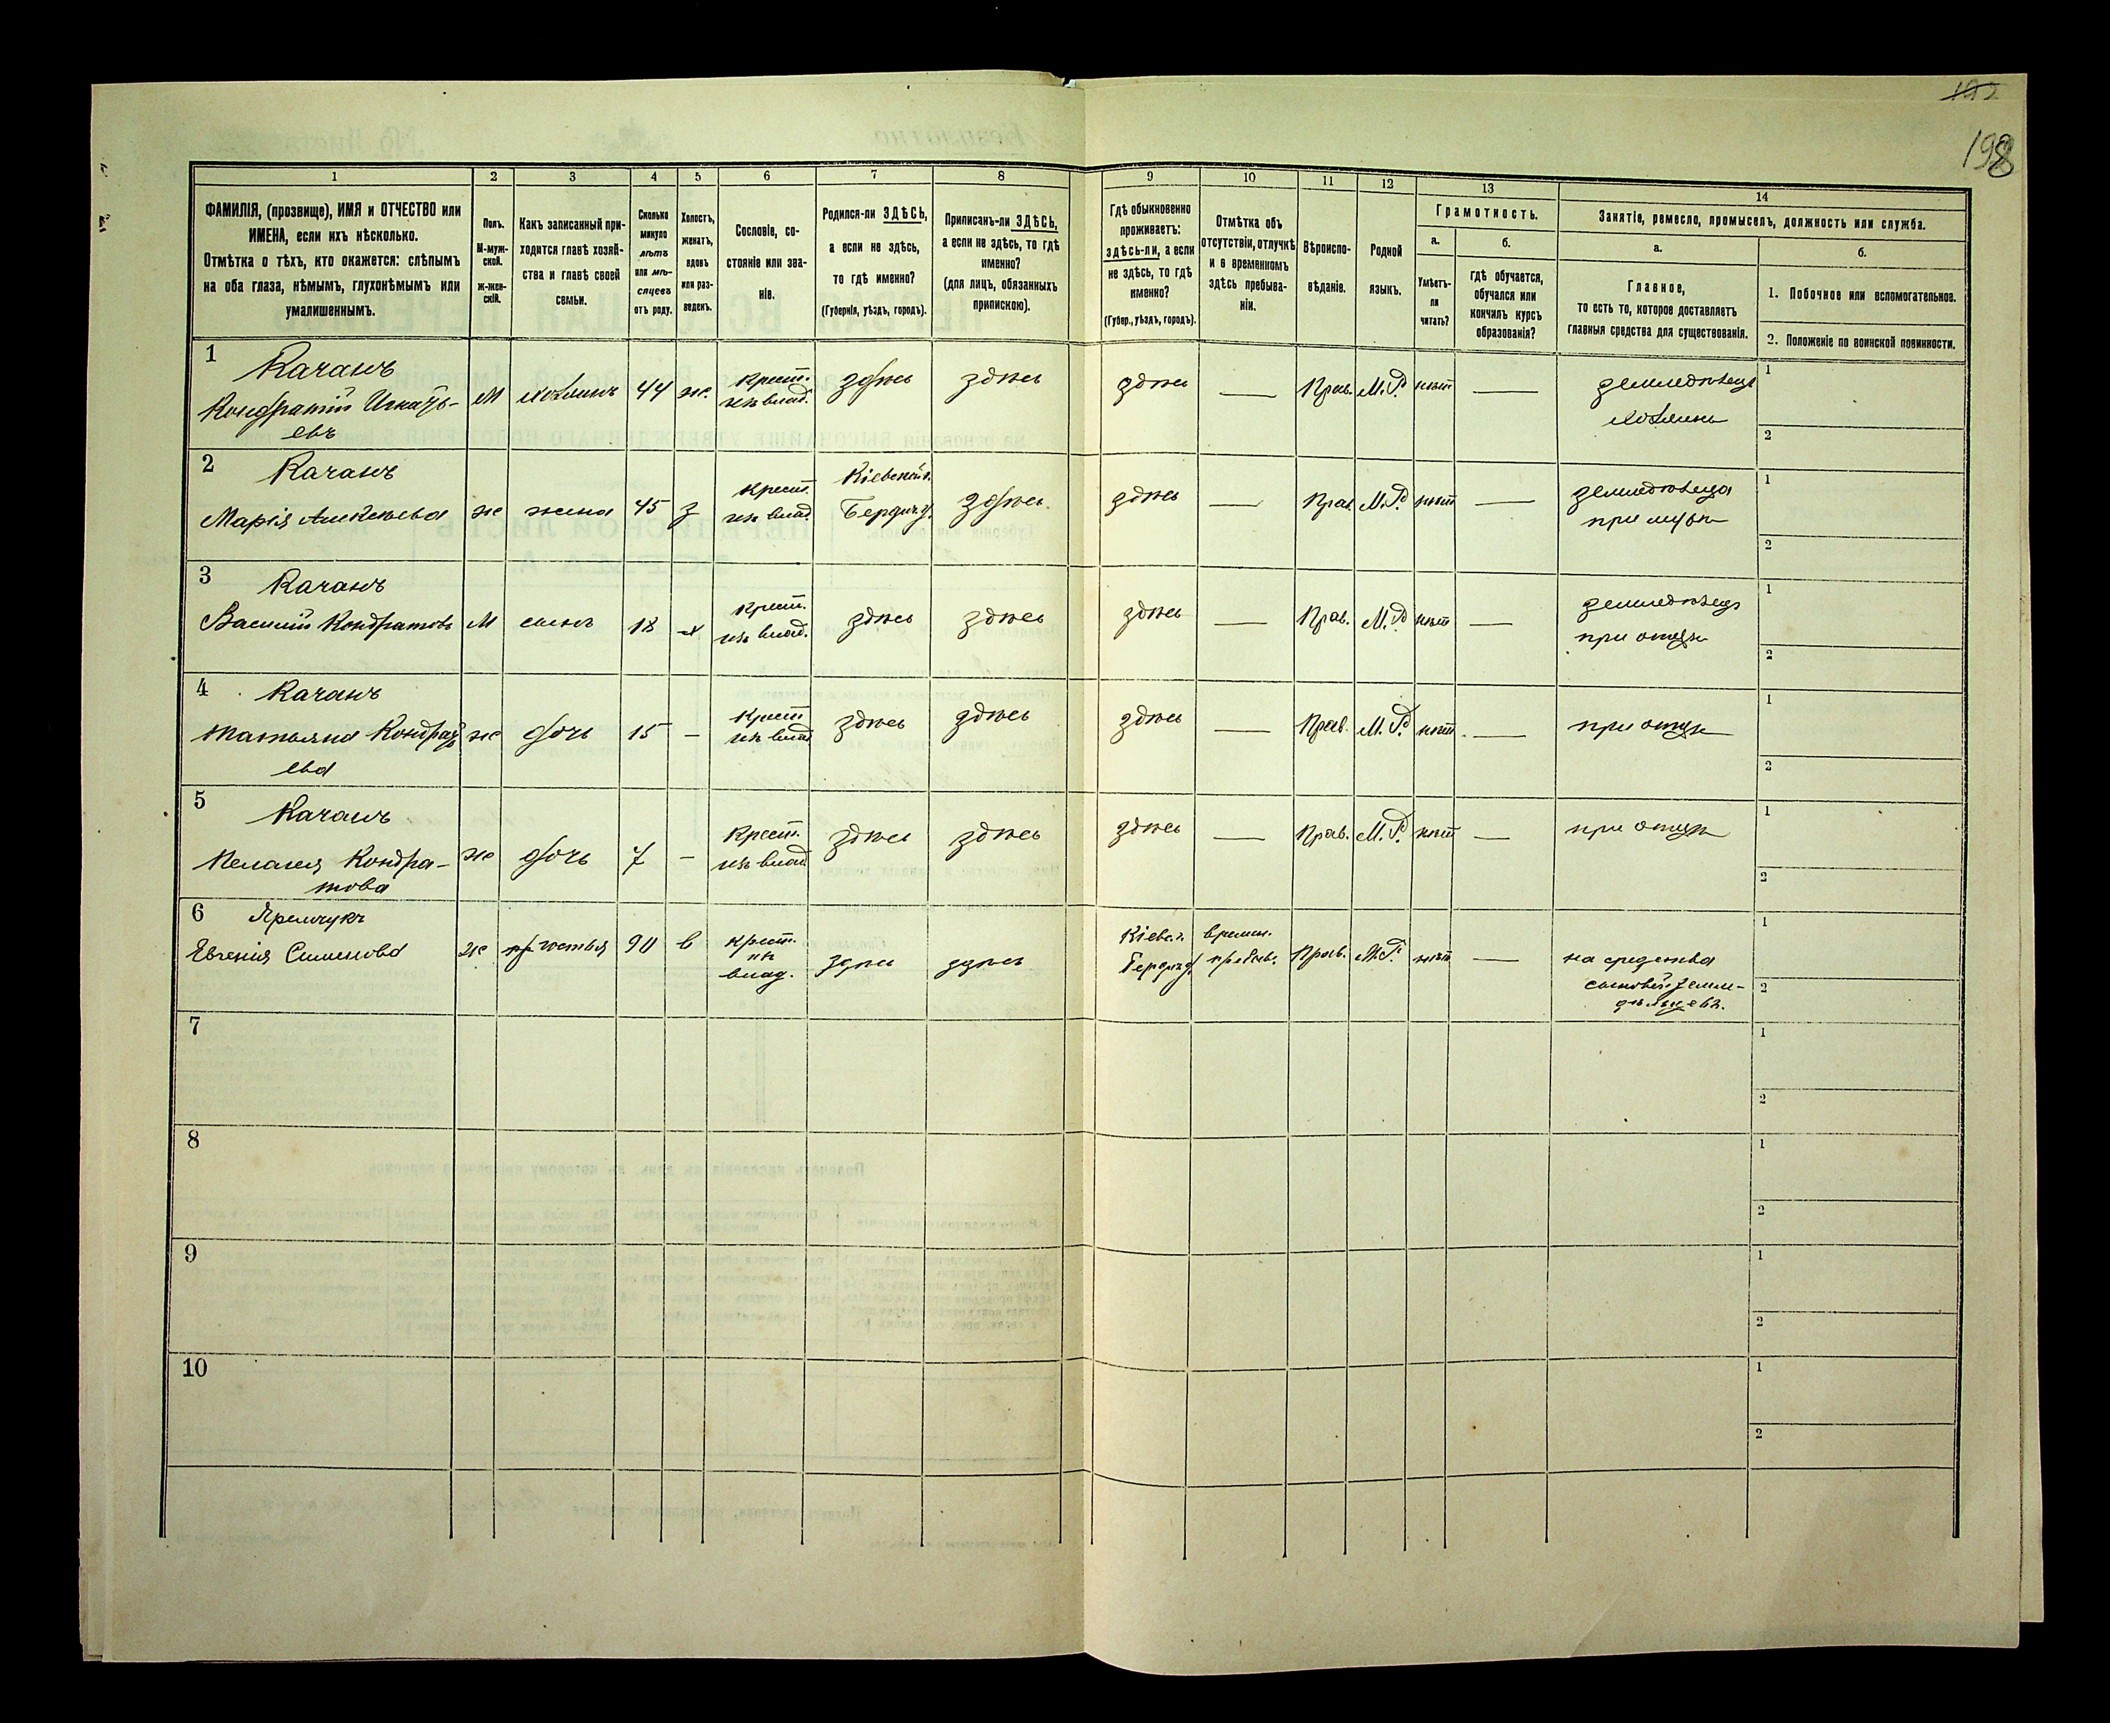 192
198
1 2 3 4 5 6 7 8 9 10 11 12 13 14
ФАМИЛІЯ, (прозвище), ИМЯ и ОТЧЕСТВО или
ИМЕНА, если ихъ нѣсколько.
Отмѣтка о тѣхъ, кто окажется: слѣпымъ
на оба глаза, нѣмымъ, глухонѣмымъ или
умалишеннымъ.
Полъ.
М-муж-
ской.
ж-жен-
скій.
Какъ записанный при-
ходится главѣ хозяй-
ства и главѣ своей
семьи.
Сколько
минуло
лѣтъ
или мѣ-
сяцевъ
отъ роду.
Холостъ,
женатъ,
вдовъ
или раз-
веденъ.
Сословіе, со-
стояніе или зва-
ніе.
Родился-ли ЗДѢСЬ,
а если не здѣсь,
то гдѣ именно?
(Губернія, уѣздъ, городъ).
Приписанъ-ли ЗДѢСЬ,
а если не здѣсь, то гдѣ
именно?
(для лицъ, обязанныхъ
припискою).
Гдѣ обыкновенно
проживаетъ:
здѣсь-ли, а если
не здѣсь, то гдѣ
именно?
(Губер., уѣздъ, городъ).
Отмѣтка объ
отсутствіи, отлучкѣ
и о временномъ
здѣсь пребыва-
ніи.
Вѣроиспо-
вѣданіе.
Родной
языкъ.
Грамотность.
а.
Умѣетъ-
ли
читать?
б.
гдѣ обучается,
обучался или
кончилъ курсъ
образованія?
Занятіе, ремесло, промыселъ, должность или служба.
а.
Главное,
то есть то, которое доставляетъ
главныя средства для существованія.
б.
1. Побочное или вспомогательное.
2. Положеніе по воинской повинности.
1 Качанъ
Кондратій Игнать-
евъ
М хозяинъ 44 ж. крест. изъ влад. здѣсь здѣсь здѣсь — Прав. М.Р. нѣтъ — земледѣлецъ
хозяинъ
1
2
2 Качанъ
Марія Алексѣева
ж жена 45 з крест. изъ влад. Кіевской г. Бердич. у. здѣсь здѣсь — Прав. М.Р. нѣтъ — земледѣлица
при мужѣ
1
2
3 Качанъ
Василій Кондратовъ
М сынъ 18 х крест. изъ влад. здѣсь здѣсь здѣсь — Прав. М.Р. нѣтъ — земледѣлецъ
при отцѣ
1
2
4 Качанъ
Татьяна Кондрать
ева
ж дочь 15 — крест. изъ влад. здѣсь здѣсь здѣсь — Прав. М.Р. нѣтъ — при отцѣ
1
2
5 Качанъ
Пелагея Кондра-
това
ж дочь 7 — Крест. изъ влад. здѣсь здѣсь здѣсь — Прав. М.Р. нѣтъ — при отцѣ
1
2
6 Яремчукъ
Евгенія Симонова
ж гостья 90 в крест. изъ влад. здѣсь здѣсь Кіевс. г. Бердич. у. времен. пребыв. Прав. М.Р. нѣтъ — на средства
сыновей земле-
дѣльцевъ.
1
2
7
1
2
8
1
2
9
1
2
10
1
2